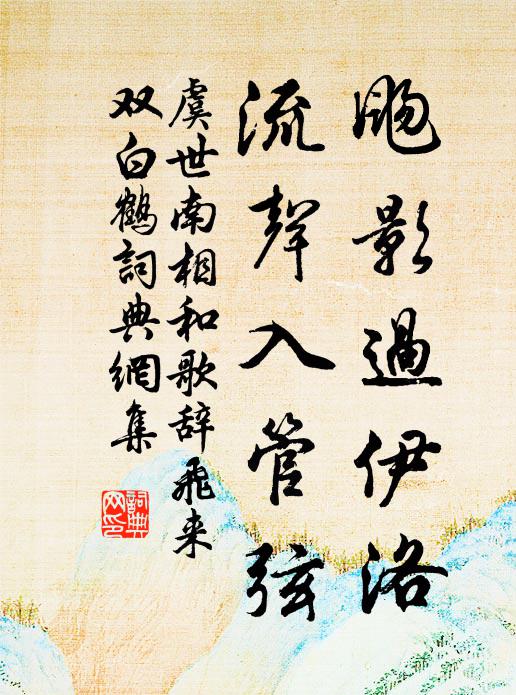 飏影過伊洛
流聲入管弦
虞世南相和歌辞飛来
双白鶴詞典網集
詞典网印